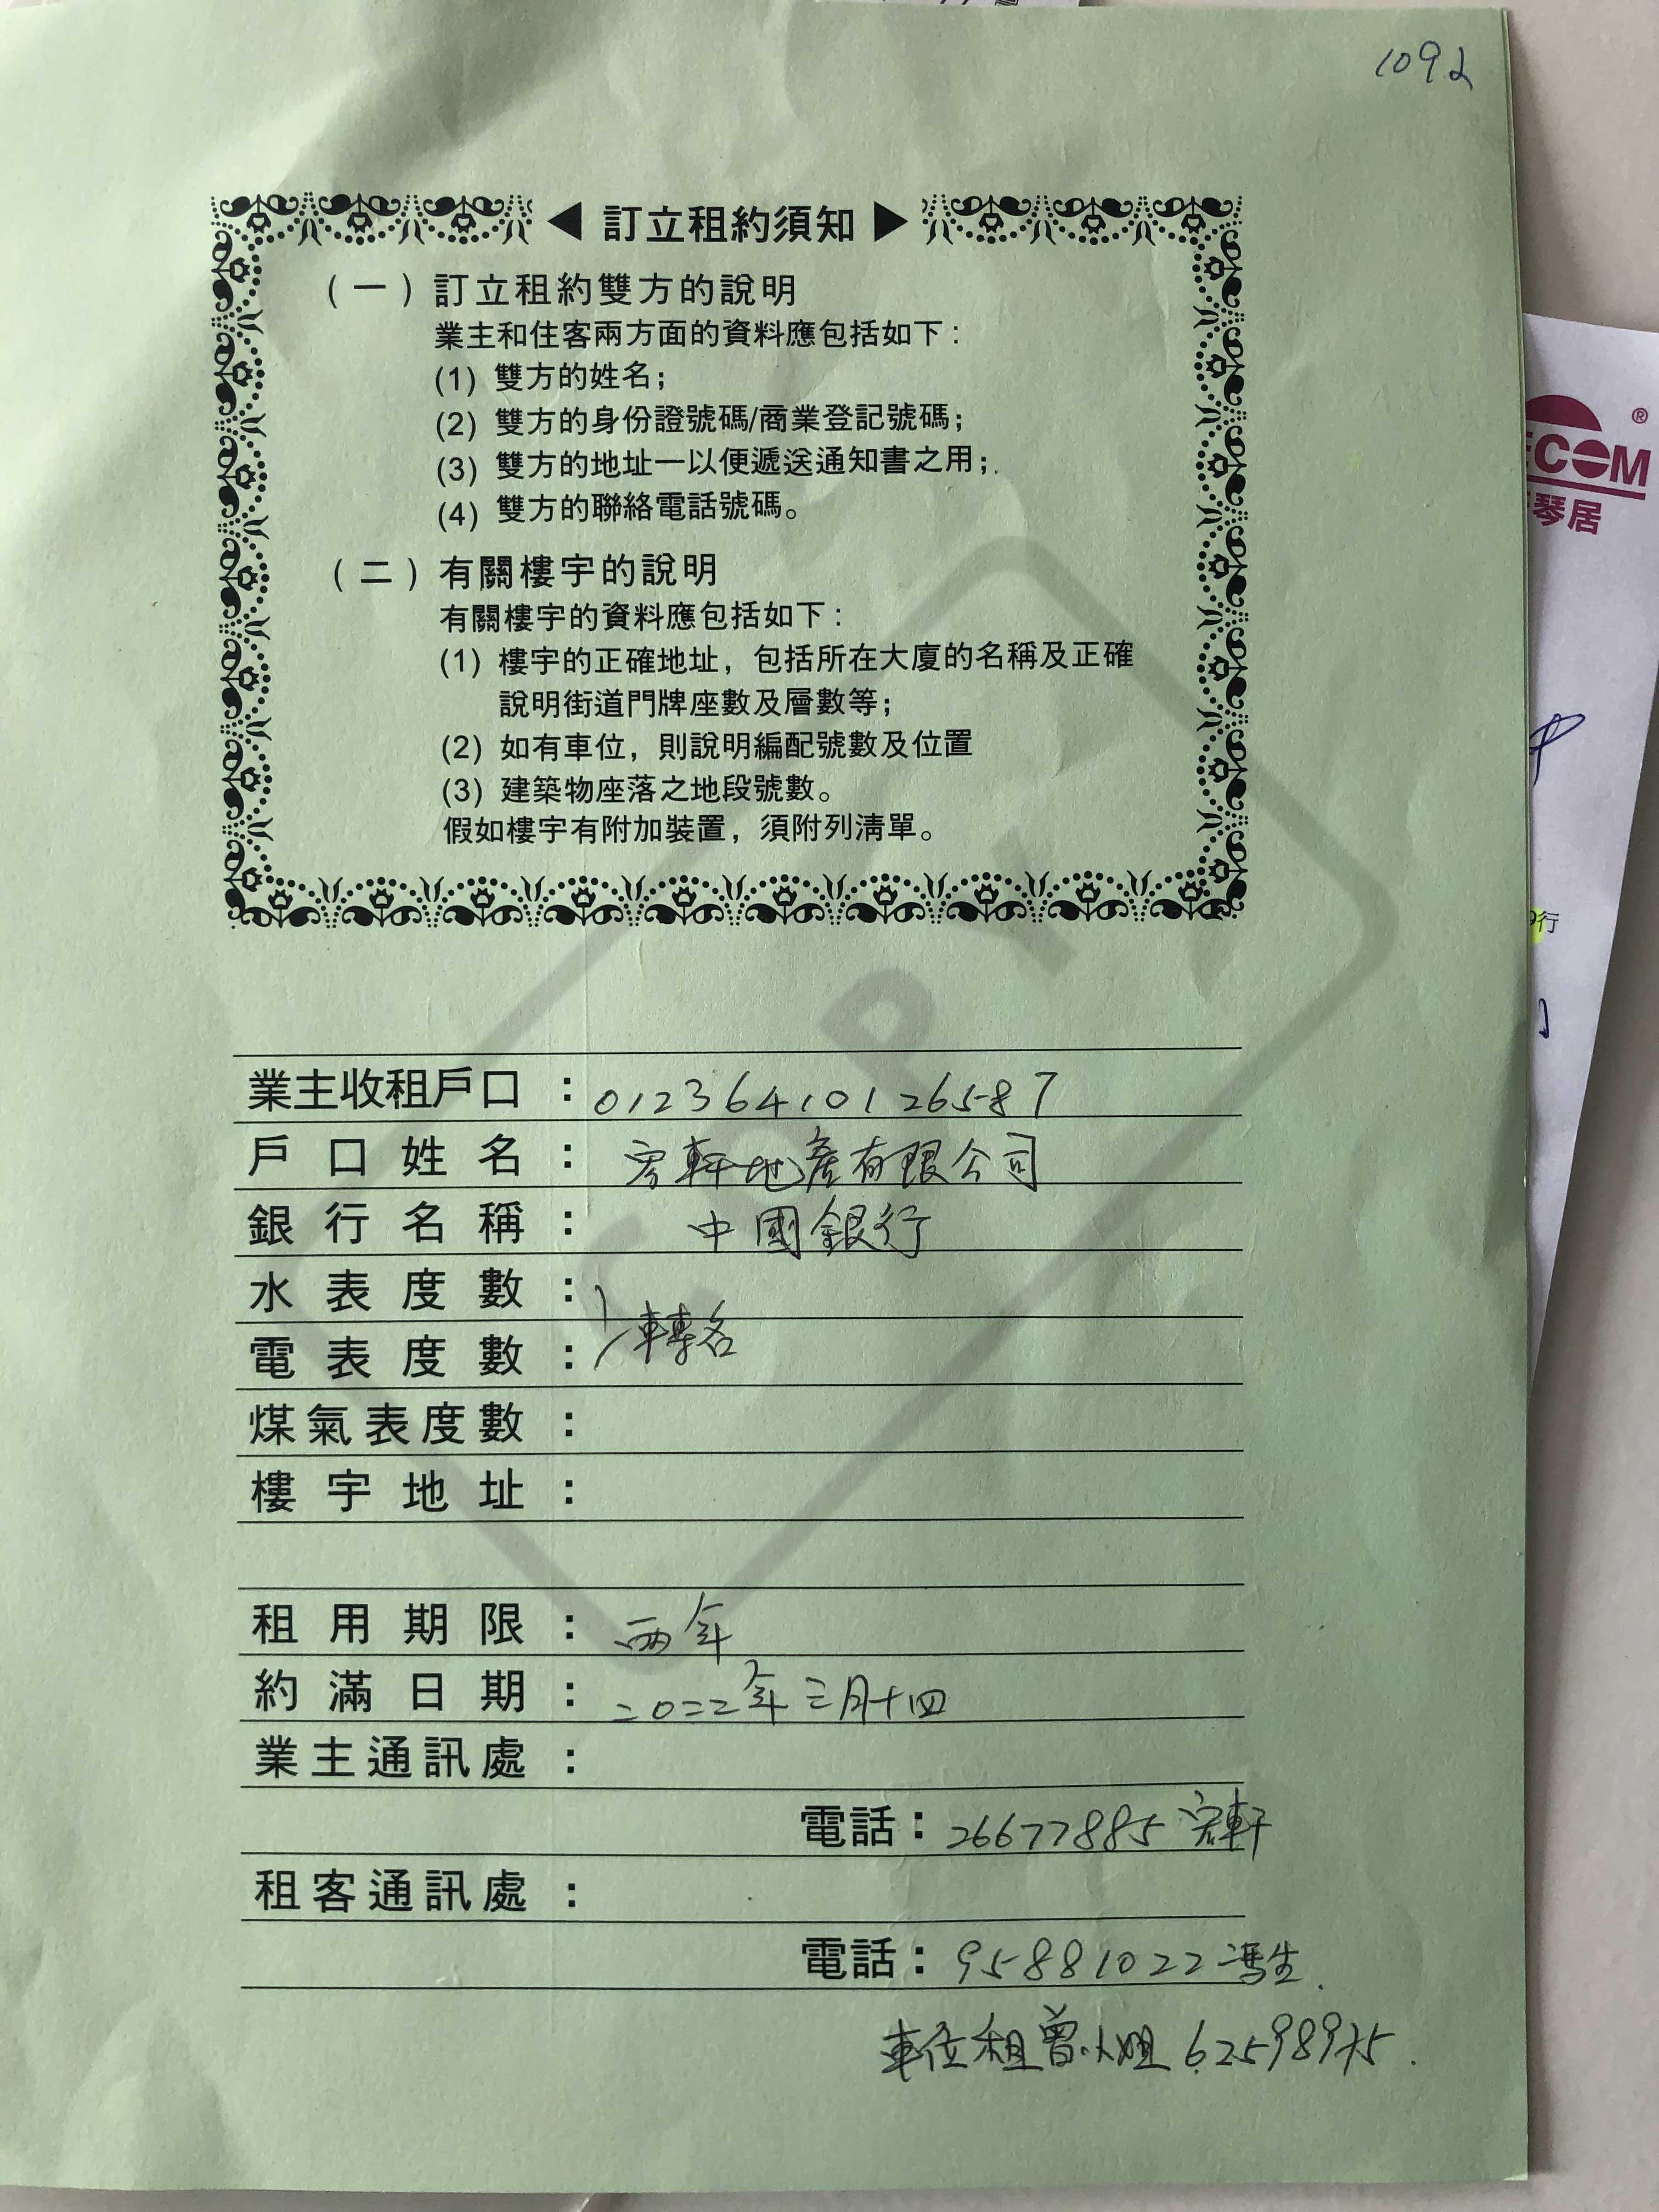 1092
◀ 訂立租約須知 ▶
(一) 訂立租約雙方的說明
業主和住客兩方面的資料應包括如下:
(1) 雙方的姓名;
(2) 雙方的身份證號碼/商業登記號碼;
(3) 雙方的地址一以便遞送通知書之用;
(4) 雙方的聯絡電話號碼。
(二) 有關樓宇的說明
有關樓宇的資料應包括如下:
(1) 樓宇的正確地址，包括所在大廈的名稱及正確
說明街道門牌座數及層數等;
(2) 如有車位，則說明編配號數及位置
(3) 建築物座落之地段號數。
假如樓宇有附加裝置，須附列清單。
COPY
業主收租戶口 : 01236410126587
戶口姓名 : 宏軒地產有限公司
銀行名稱 : 中國銀行
水表度數 :
電表度數 : 轉名
煤氣表度數 :
樓宇地址 :
租用期限 : 兩年
約滿日期 : 二0二二年三月十四
業主通訊處 :
電話: 26677885 宏軒
租客通訊處 :
電話: 95881022 馮生.
車位租曾小姐 62598975.
ECOM®
琴居
行